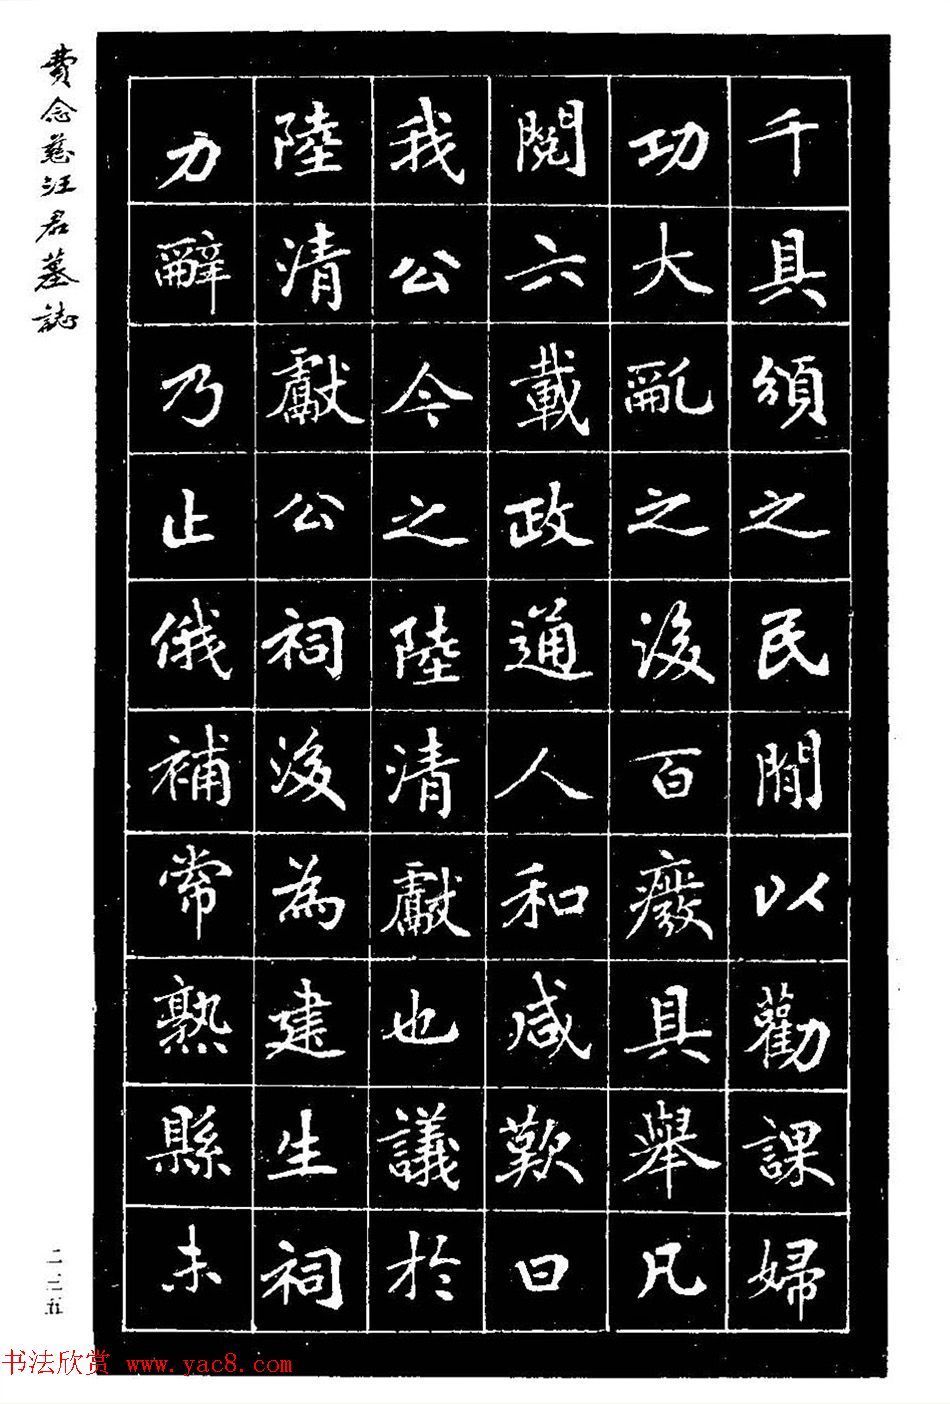 千具頒之民間以勸課婦
功大亂之後百廢具舉凡
閱六載政通人和咸歎曰
我公今之陸清獻也議於
陸清獻公祠後為建生祠
力辭乃止俄補常熟縣未
費念慈汪君墓誌
二三五
书法欣赏 www.yac8.com